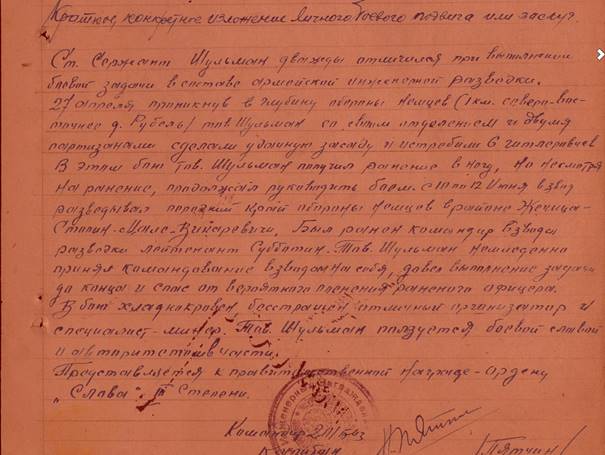 Краткое, конкретное изложение личного боевого подвига или заслуг.
Ст. Сержант Шульман дважды отличился при выполнении
боевой задачи в составе армейской инженерной разведки.
27 апреля проникнув в глубину обороны немцев (1 км. северо-вос-
точнее д. Рубель) тов. Шульман со своим отделением и двумя
партизанами сделали удачную засаду и истребили 6 гитлеровцев
В этом бою тов. Шульман получил ранение в ногу, но несмотря
на ранение, продолжал руководить боем. с 10 по 12 июня взвод
разведывал передний край обороны немцев в районе
Был ранен командир взвода
разведки лейтенант Субботин. Тов. Шульман немедленно
принял командование взводом на себя, довёл выполнение задачи
до конца и спас от вероятного пленения раненого офицера.
В бою хладнокровен бесстрашен отличный организатор и
специалист-минёр. Тов. Шульман пользуется боевой славой
и авторитетом в части.
Представляется к правительственной награде - Ордену
"Слава" Степени.
Командир
Капитан